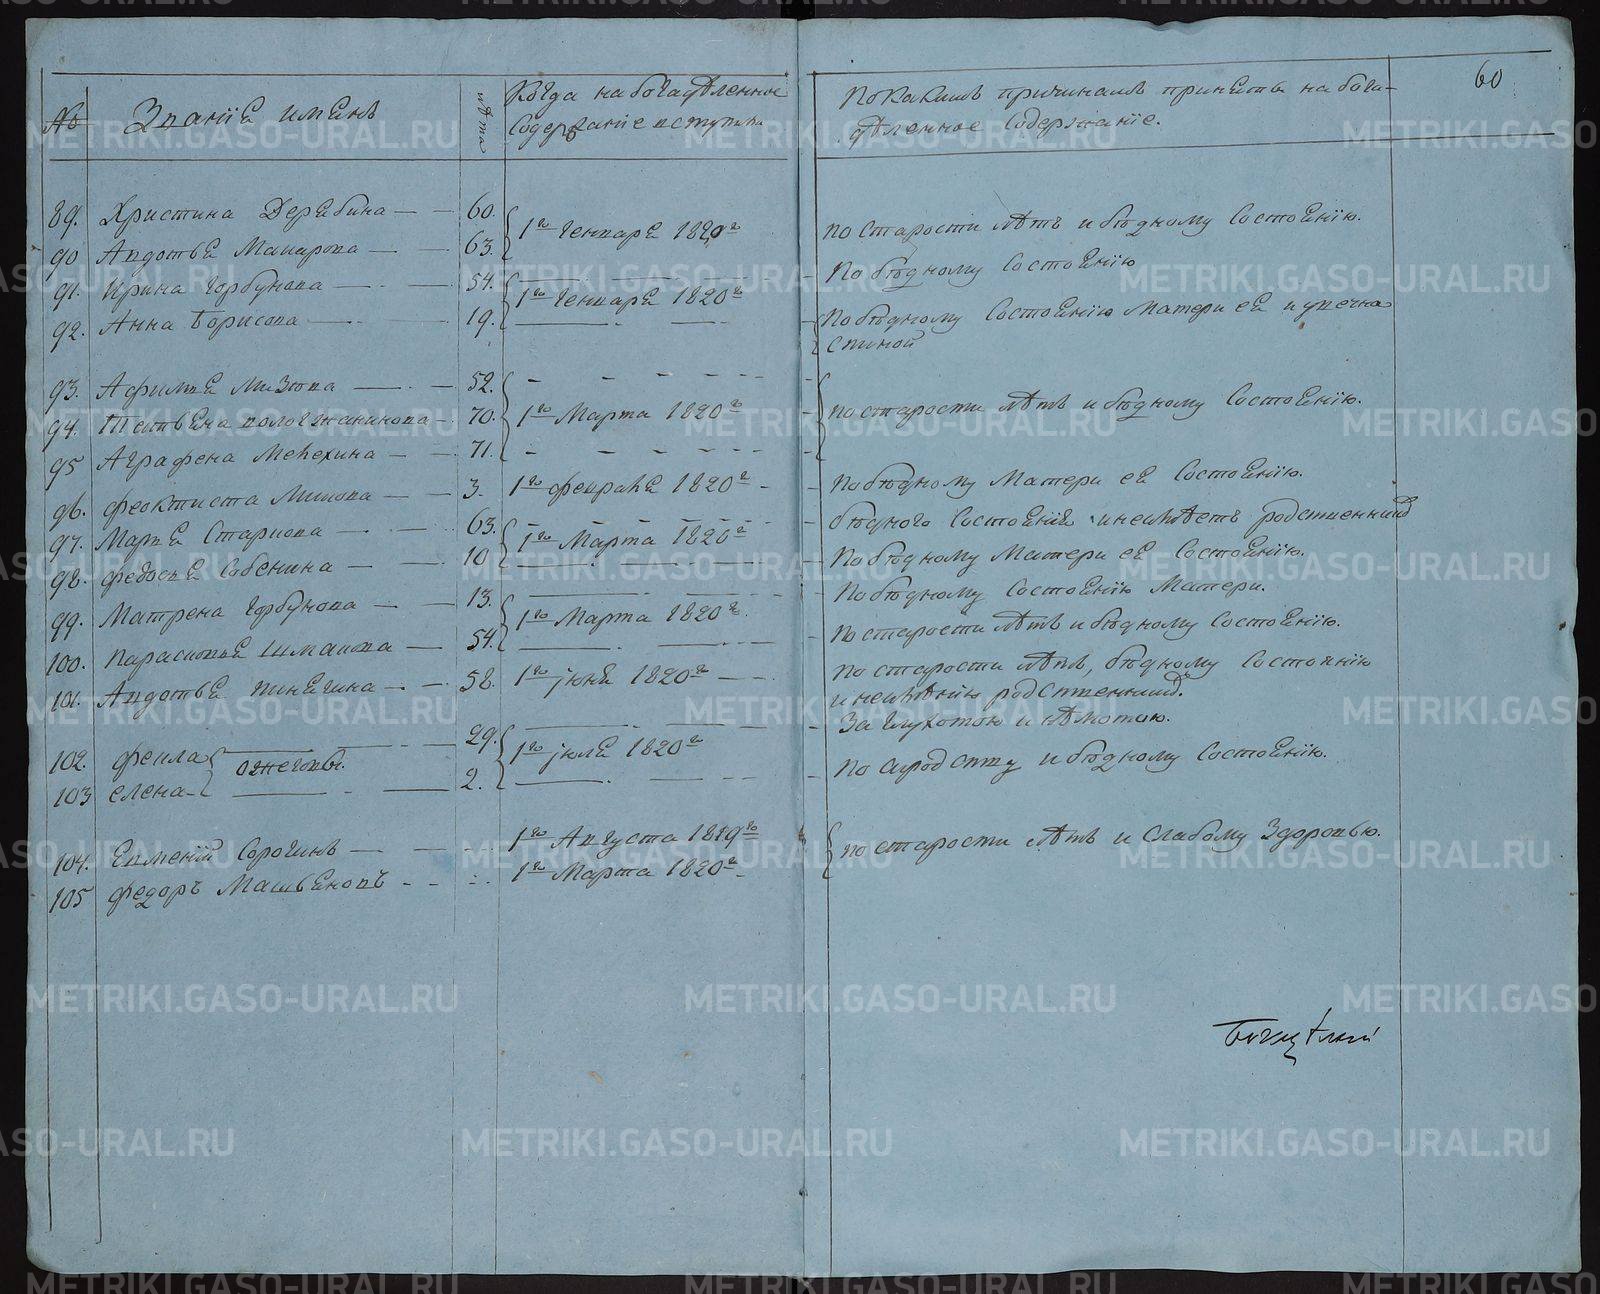 60
№ Званiе имѣнъ лѣта Когда на богадѣленное Содержанiе вступили По какимъ причинамъ приняты на бога-
дѣленное Содержанiе.
89. Христина Дерябина — — 60. 1го Генваря 1820го По старости лѣтъ и бѣдному Состоянiю.
90 Авдотья Макарова — — 63.
91. Ирина Горбунова — — 54. 1го Генваря 1820го По бѣдному Состоянiю
92. Анна Борисова — — 19. По бѣдному Состоянiю Матери ея и увечна
спиной
93. Афимья Мизова — — 52.
94. Татьяна 70. 1го Марта 1820го по старости лѣтъ и бѣдному Состоянiю.
95 Аграфена Мехехина — — 71.
96. Феоктиста — — 3. 1го февраля 1820го По бѣдному Матери ея Состоянiю.
97. Марья Старкова — — 63. 1го Марта 1820го бѣдного Состоянiя и неимѣетъ родственниковъ
98. Федосья Собенина — — 10 По бѣдному Матери ея Состоянiю.
99. Матрена Горбунова — — 13. 1го Марта 1820го По бѣдному Состоянiю Матери.
100. Парасковья Шмакова — 54. По старости лѣтъ и бѣдному Состоянiю.
101. Авдотья Пинягина — — 58. 1го Iюня 1820го По старости лѣтъ, бѣдному Состоянiю
и неимѣнiю родственниковъ.
102. Фекла Ожеговы. 29. 1го Iюля 1820го За глухотою и нѣмотою.
103 Елена 2. По сиродству и бѣдному Состоянiю.
104. Евменiй Сорогинъ — — 1го Августа 1819го по старости лѣтъ и Слабому Здоровью.
105 Федоръ Машьяновъ 1го Марта 1820го
METRIKI.GASO-URAL.RU